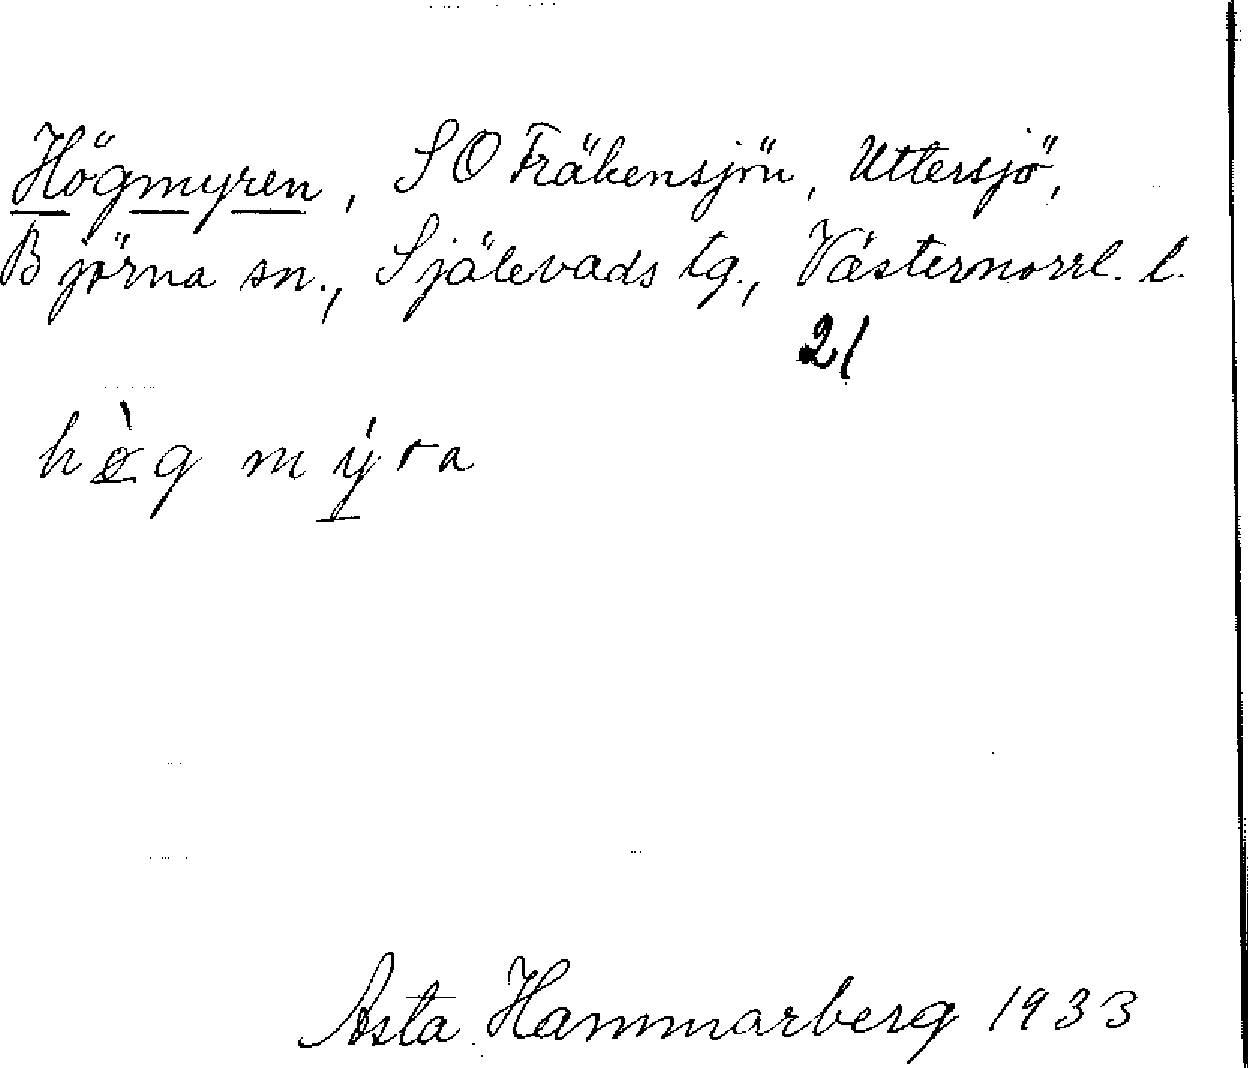 Högmyren, SO Fräkensjön, Uttersjö,
Björna sn., Själevads tg., Västernorrl. l.
21
hø̀g mýra
Asta Hammarberg 1933